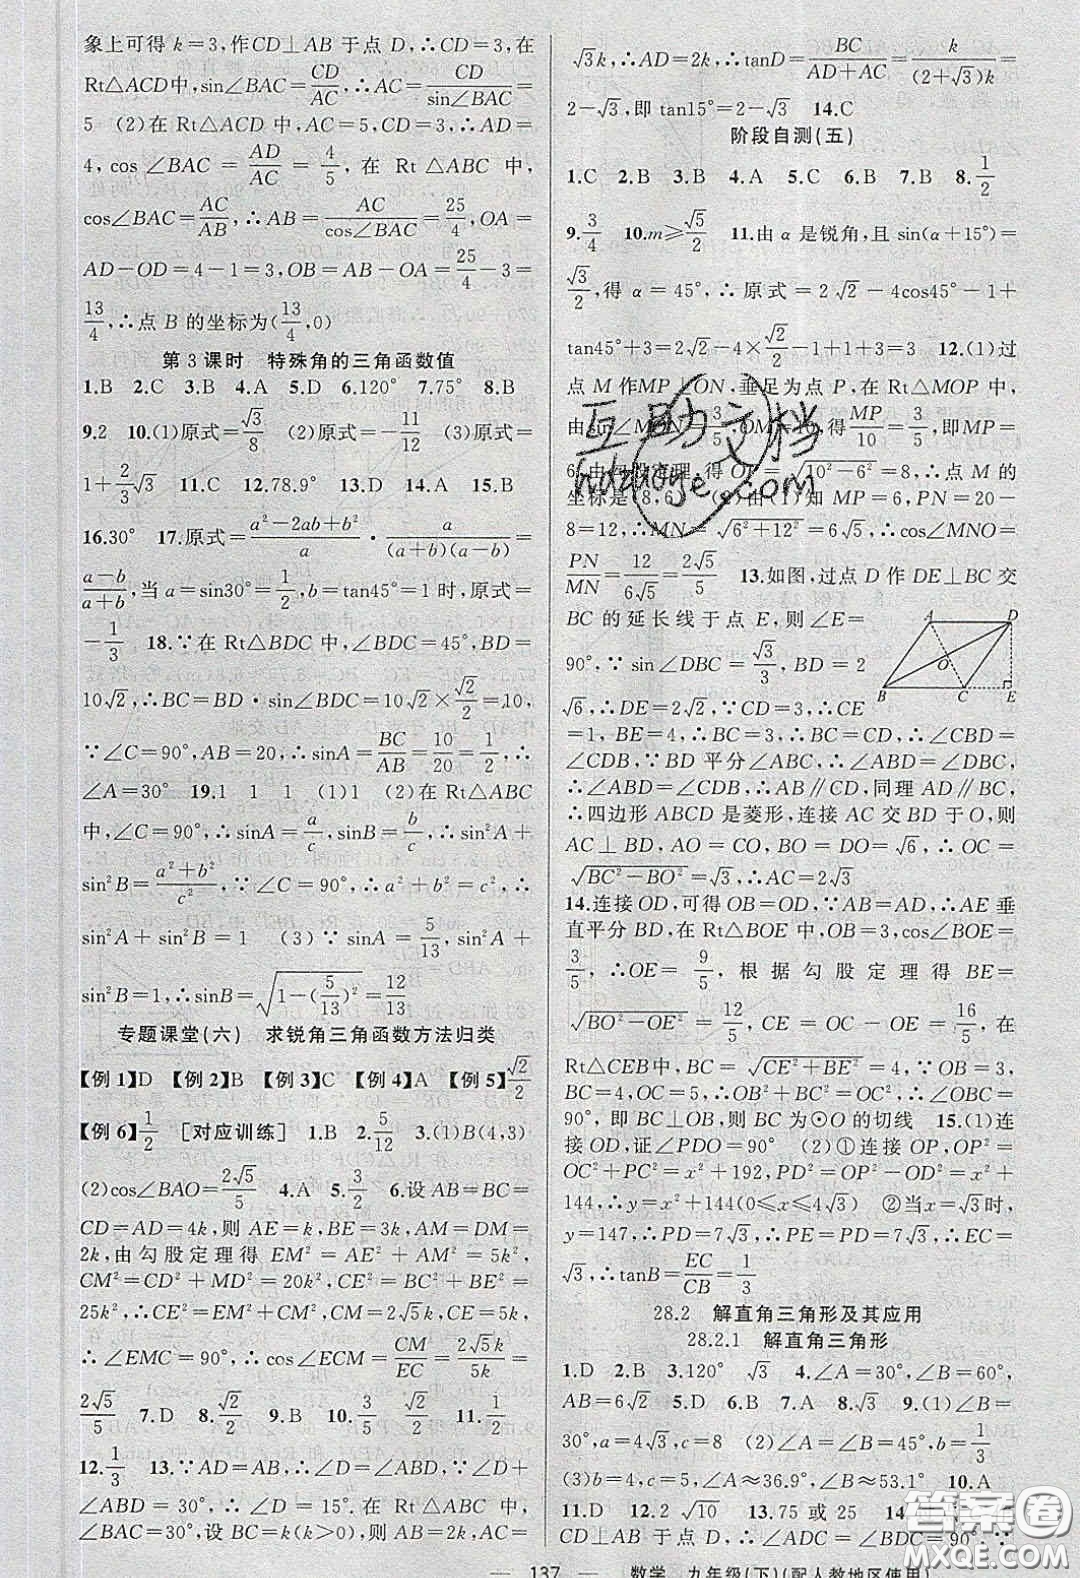 象上可得 k=3,作CD⊥AB 于点 D,∴CD=3,在
Rt△ACD中,sin∠BAC=CD/AC,∴AC=CD/sin∠BAC=
5 (2)在 Rt△ACD 中,AC=5,CD=3,∴AD=
4,cos∠BAC=AD/AC=4/5,在 Rt△ABC 中,
cos∠BAC=AC/AB,∴AB=AC/cos∠BAC=25/4,OA=
AD-OD=4-1=3,OB=AB-OA=25/4-3=
13/4,∴点 B 的坐标为(13/4,0)
第 3 课时 特殊角的三角函数值
1.B 2.C 3.B 4.A 5.D 6.120° 7.75° 8.B
9.2 10.(1)原式=√3/8 (2)原式=-11/12 (3)原式=
1+2/3√3 11.C 12.78.9° 13.D 14.A 15.B
16.30° 17.原式=(a²-2ab+b²)/a·a/((a+b)(a-b))=
(a-b)/(a+b),当 a=sin30°=1/2,b=tan45°=1时,原式=
-1/3 18.∵在 Rt△BDC 中,∠BDC=45°,BD=
10√2,∴BC=BD·sin∠BDC=10√2×√2/2=10,
∵∠C=90°,AB=20,∴sinA=BC/AB=10/20=1/2,∴
∠A=30° 19.1 1 1 (1)1 (2)在Rt△ABC
中,∠C=90°,∴sinA=a/c,sinB=b/c,∴sin²A+
sin²B=(a²+b²)/c²,∵∠C=90°,∴a²+b²=c²,∴
sin²A+sin²B=1 (3)∵sinA=5/13,sin²A+
sin²B=1,∴sinB=√(1-(5/13)²)=12/13
专题课堂(六) 求锐角三角函数方法归类
【例1】D 【例2】B 【例3】C 【例4】A 【例5】√2/2
【例6】1/2 [对应训练] 1.B 2.5/12 3.(1)B(4,3)
(2)cos∠BAO=2√5/5 4.A 5.3/2 6.设 AB=BC=
CD=AD=4k,则 AE=k,BE=3k,AM=DM=
2k,由勾股定理得 EM²=AE²+AM²=5k²,
CM²=CD²+MD²=20k²,CE²=BC²+BE²=
25k²,∴CE²=EM²+CM²,CM=2√5k,CE=5k,
∴∠EMC=90°,∴cos∠ECM=CM/EC=2√5k/5k=
2√5/5 7.D 8.√2/2 9.B 10.3/5 11.1/2
12.1/3 13.∵AD=AB,∴∠D=∠ABD,∵∠D+
∠ABD=30°,∴∠D=15°.在 Rt△ABC 中,
∠BAC=30°,设 BC=k(k>0),则 AB=2k,AC=
√3k,∴AD=2k,∴tanD=BC/(AD+AC)=k/((2+√3)k)=
2-√3,即 tan15°=2-√3 14.C
阶段自测(五)
1.C 2.B 3.B 4.A 5.C 6.B 7.B 8.1/2
9.3/4 10.m≥√5/2 11.由 α 是锐角,且 sin(α+15°)=
√3/2,得 α=45°,∴原式=2√2-4cos45°-1+
tan45°+3=2√2-4×√2/2-1+1+3=3 12.(1)过
点 M 作MP⊥ON,垂足为点 P,在 Rt△MOP 中,
由sin∠MON=3/5,OM=10,得MP/10=3/5,即MP=
6,由勾股定理,得 OP=√(10²-6²)=8,∴点 M 的
坐标是(8,6) (2)由(1)知 MP=6,PN=20-
8=12,∴MN=√(6²+12²)=6√5,∴cos∠MNO=
PN/MN=12/6√5=2√5/5 13.如图,过点 D 作 DE⊥BC 交
BC 的延长线于点 E,则∠E=
90°,∵sin∠DBC=√3/3,BD=2
√6,∴DE=2√2,∵CD=3,∴CE
=1,BE=4,∴BC=3,∴BC=CD,∴∠CBD=
∠CDB,∵BD 平分∠ABC,∴∠ABD=∠DBC,
∴∠ABD=∠CDB,∴AB∥CD,同理 AD∥BC,
∴四边形 ABCD 是菱形,连接 AC 交 BD 于 O,则
AC⊥BD,AO=CO,BO=DO=√6,∴OC=
√(BC²-BO²)=√3,∴AC=2√3
14.连接 OD,可得 OB=OD,∵AB=AD,∴AE 垂
直平分 BD,在 Rt△BOE 中,OB=3,cos∠BOE=
3/5,∴OE=9/5,根据勾股定理得 BE=
√(BO²-OE²)=12/5,CE=OC-OE=16/5,在
Rt△CEB中,BC=√(CE²+BE²)=4,∵OB=3,
BC=4,OC=5,∴OB²+BC²=OC²,∴∠OBC=
90°,即 BC⊥OB,则 BC 为⊙O 的切线 15.(1)连
接 OD,证∠PDO=90° (2)①连接 OP,OP²=
OC²+PC²=x²+192,PD²=OP²-OD²=x²+
144,∴y=x²+144(0≤x≤4√3) ②当x=√3时,
y=147,∴PD=7√3,∴PE=PD=7√3,∴EC=
√3,∴tanB=EC/CB=1/3
28.2 解直角三角形及其应用
28.2.1 解直角三角形
1.D 2.B 3.120° √3 4.∠A=30°,∠B=60°,
AB=6√2 5.D 6.B 7.A 8.A 9.(1)∠B=
30°,a=4√3,c=8 (2)∠A=∠B=45°,b=
(3)b=4,c=5,∠A≈36.9°,∠B≈53.1° 10.A
11.D 12.2√10 13.75 或 25
CD⊥AB 于点 D,∴∠ADC=∠BDC=90°.∵
A D O B C E
互助文档
hdzuoye.com
答案圈
MXQE.COM
— 137 — 数学 九年级(下)(配人教地区使用)